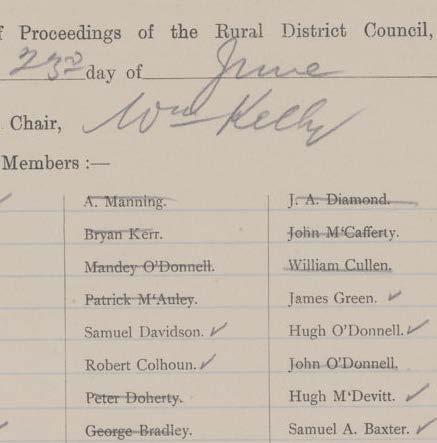 f Proceedings of the Rural District Council,
23rd day of June
Chair, Wm Kelly
Members :—
A. Manning. J. A. Diamond.
Bryan Kerr. John M‘Cafferty.
Mandey O’Donnell. William Cullen.
Patrick M‘Auley. James Green. ✓
Samuel Davidson. ✓ Hugh O’Donnell. ✓
Robert Colhoun. ✓ John O’Donnell.
Peter Doherty. Hugh M‘Devitt. ✓
George Bradley. Samuel A. Baxter. ✓